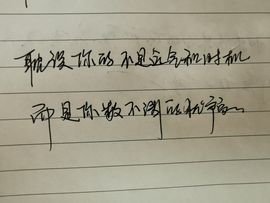 耽误你的不是运气和时机
而是你数不清的犹豫